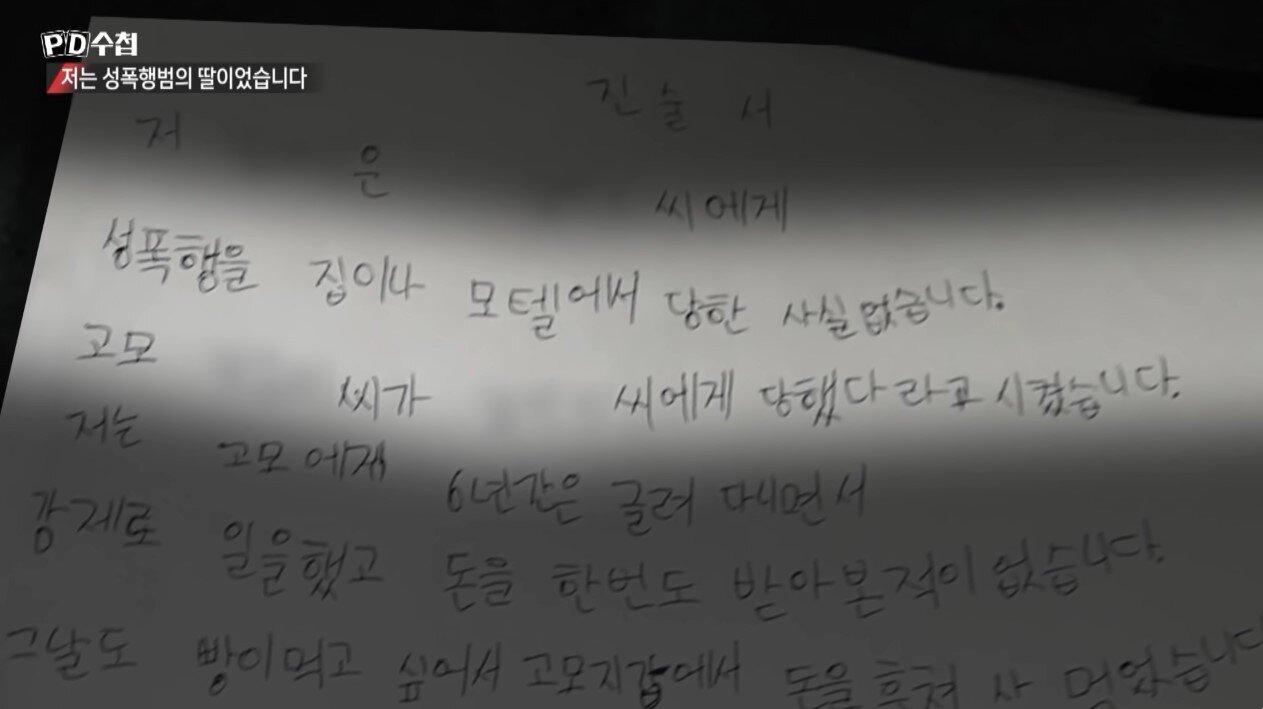 PD수첩
저는 성폭행범의 딸이었습니다
진술서
저 은 씨에게
성폭행을 집이나 모텔에서 당한 사실 없습니다.
고모 씨가 씨에게 당했다 라고 시켰습니다.
저는 고모에게 6년간은 끌려 다니면서
강제로 일을했고 돈을 한번도 받아본적이 없습니다.
그날도 빵이먹고 싶어서 고모지갑에서 돈을 훔쳐 사 먹었습니다